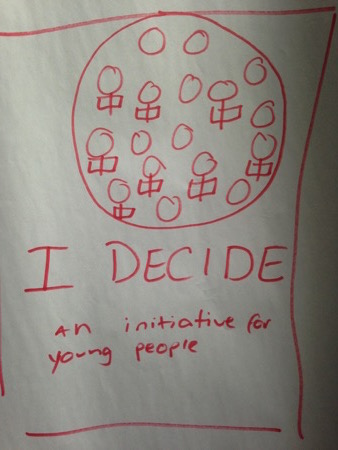 I DECIDE
An initiative for
young people